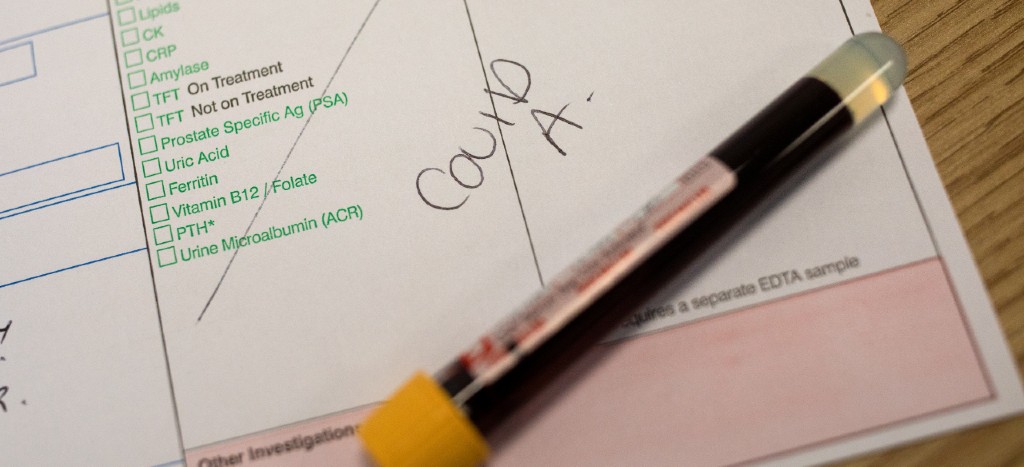 Lipids
CK
CRP
Amylase
TFT On Treatment
TFT Not on Treatment
Prostate Specific Ag (PSA)
Uric Acid
Ferritin
Vitamin B12 / Folate
PTH*
Urine Microalbumin (ACR)
COVID
A.
a separate EDTA sample
Other Investigations